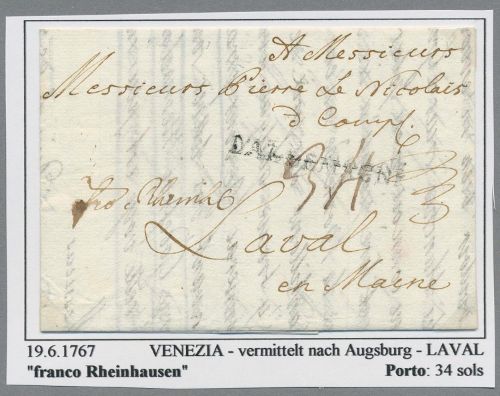 A Messieurs
Messieurs Pierre Le Nicolais
& Comp.
D'ALLEMAGNE
34
fro Rheinh
Laval
en Maine
19.6.1767 VENEZIA - vermittelt nach Augsburg - LAVAL
"franco Rheinhausen" Porto: 34 sols